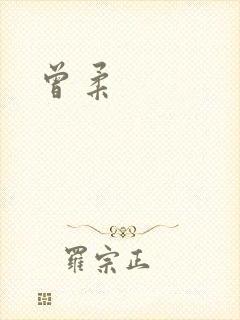 曾柔
羅宗正